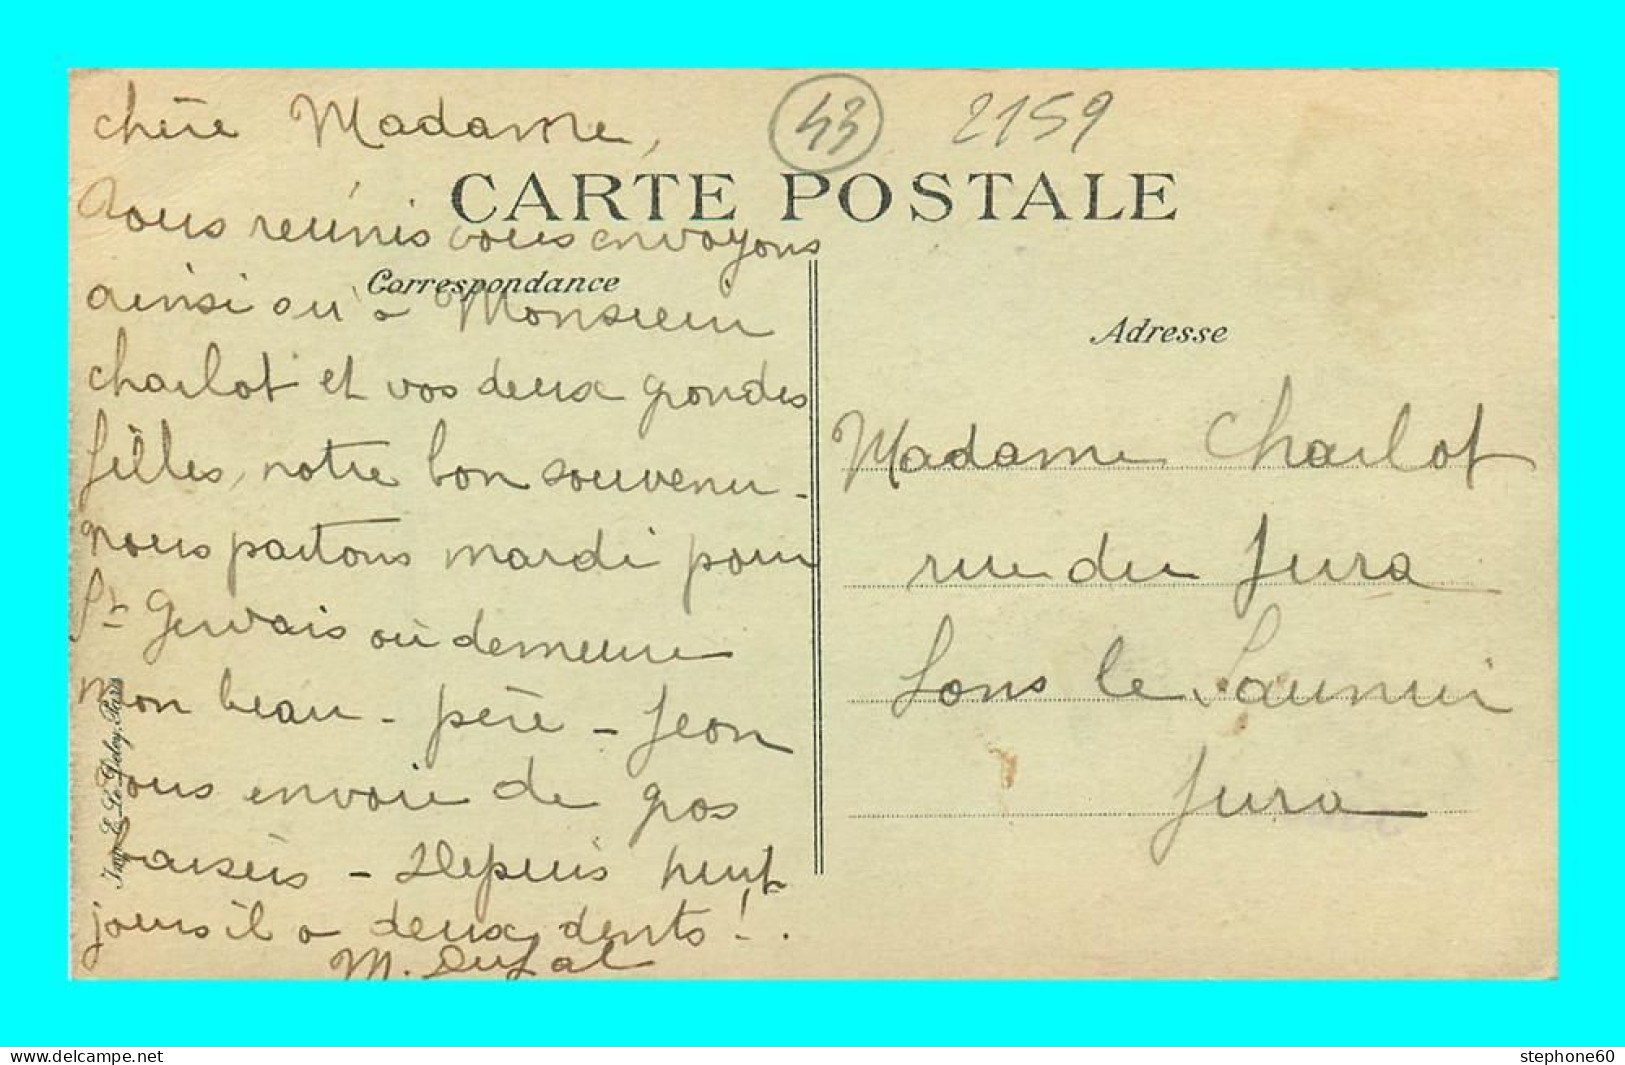 43 2159
CARTE POSTALE
Correspondance
Adresse
chère Madame,
Nous réunis vous envoyons
ainsi qu'à Monsieur
Charlot et vos deux grandes
filles, notre bon souvenir -
nous partons mardi pour
St Gervais où demeure
mon beau-père - Jean
vous envoie de gros
baisers - Depuis huit
jours il a deux dents !.
M.
Madame Charlot
rue du Jura
Lons le Saunier
Jura
Imp. E. Le Deley, Paris
delcampe.net
stephone60